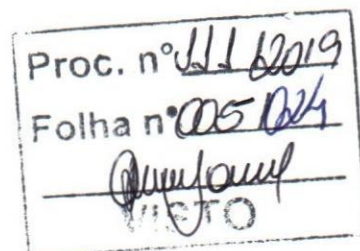 Proc. nº 111/2019
Folha nº 005
VISTO